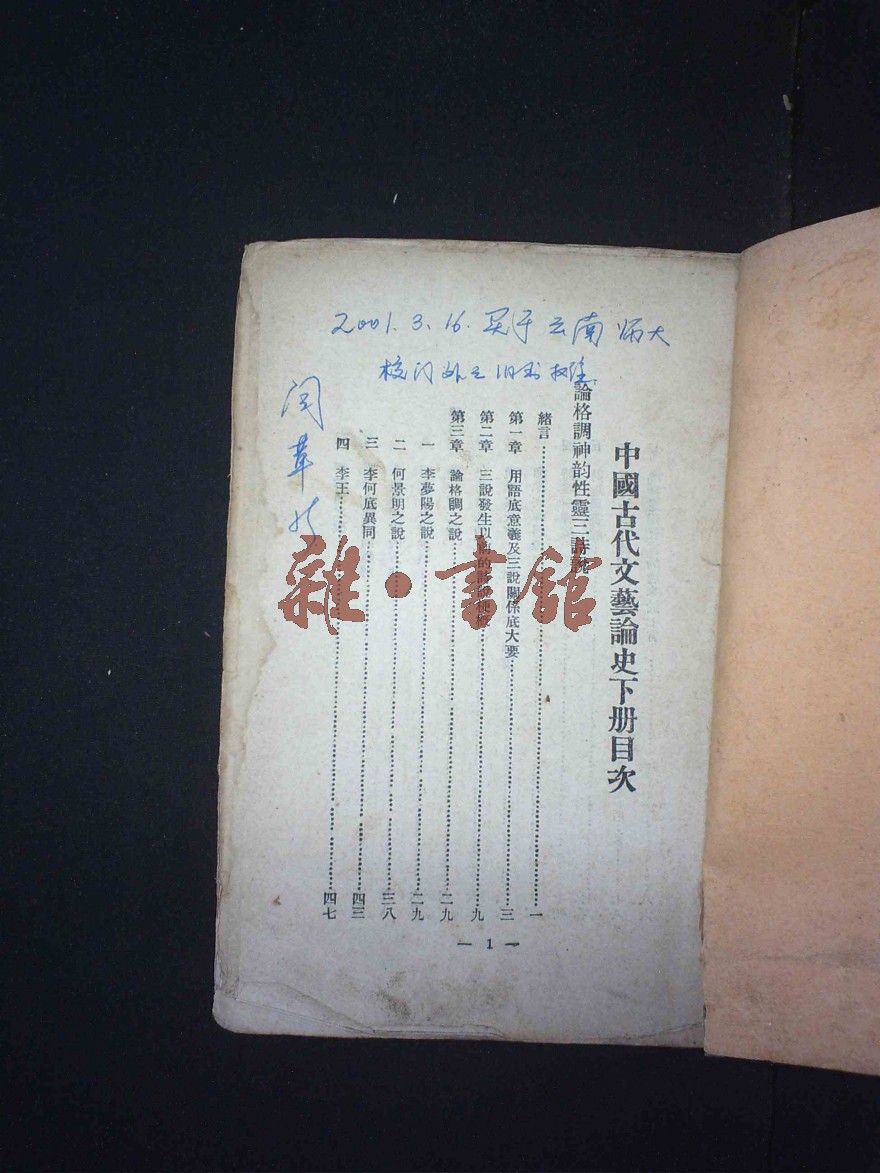 2001.3.16.买于云南师大
校门外之旧书摊
中國古代文藝論史下册目次
論格調神韵性靈三詩說
緒言…………一
第一章　用語底意義及三說關係底大要…………三
第二章　三說發生以前的詩說梗概…………九
第三章　論格調之說…………二九
一　李夢陽之說…………二九
二　何景明之說…………三八
三　李何底異同…………四三
四　李王…………四七
— 1 —
雜·書館